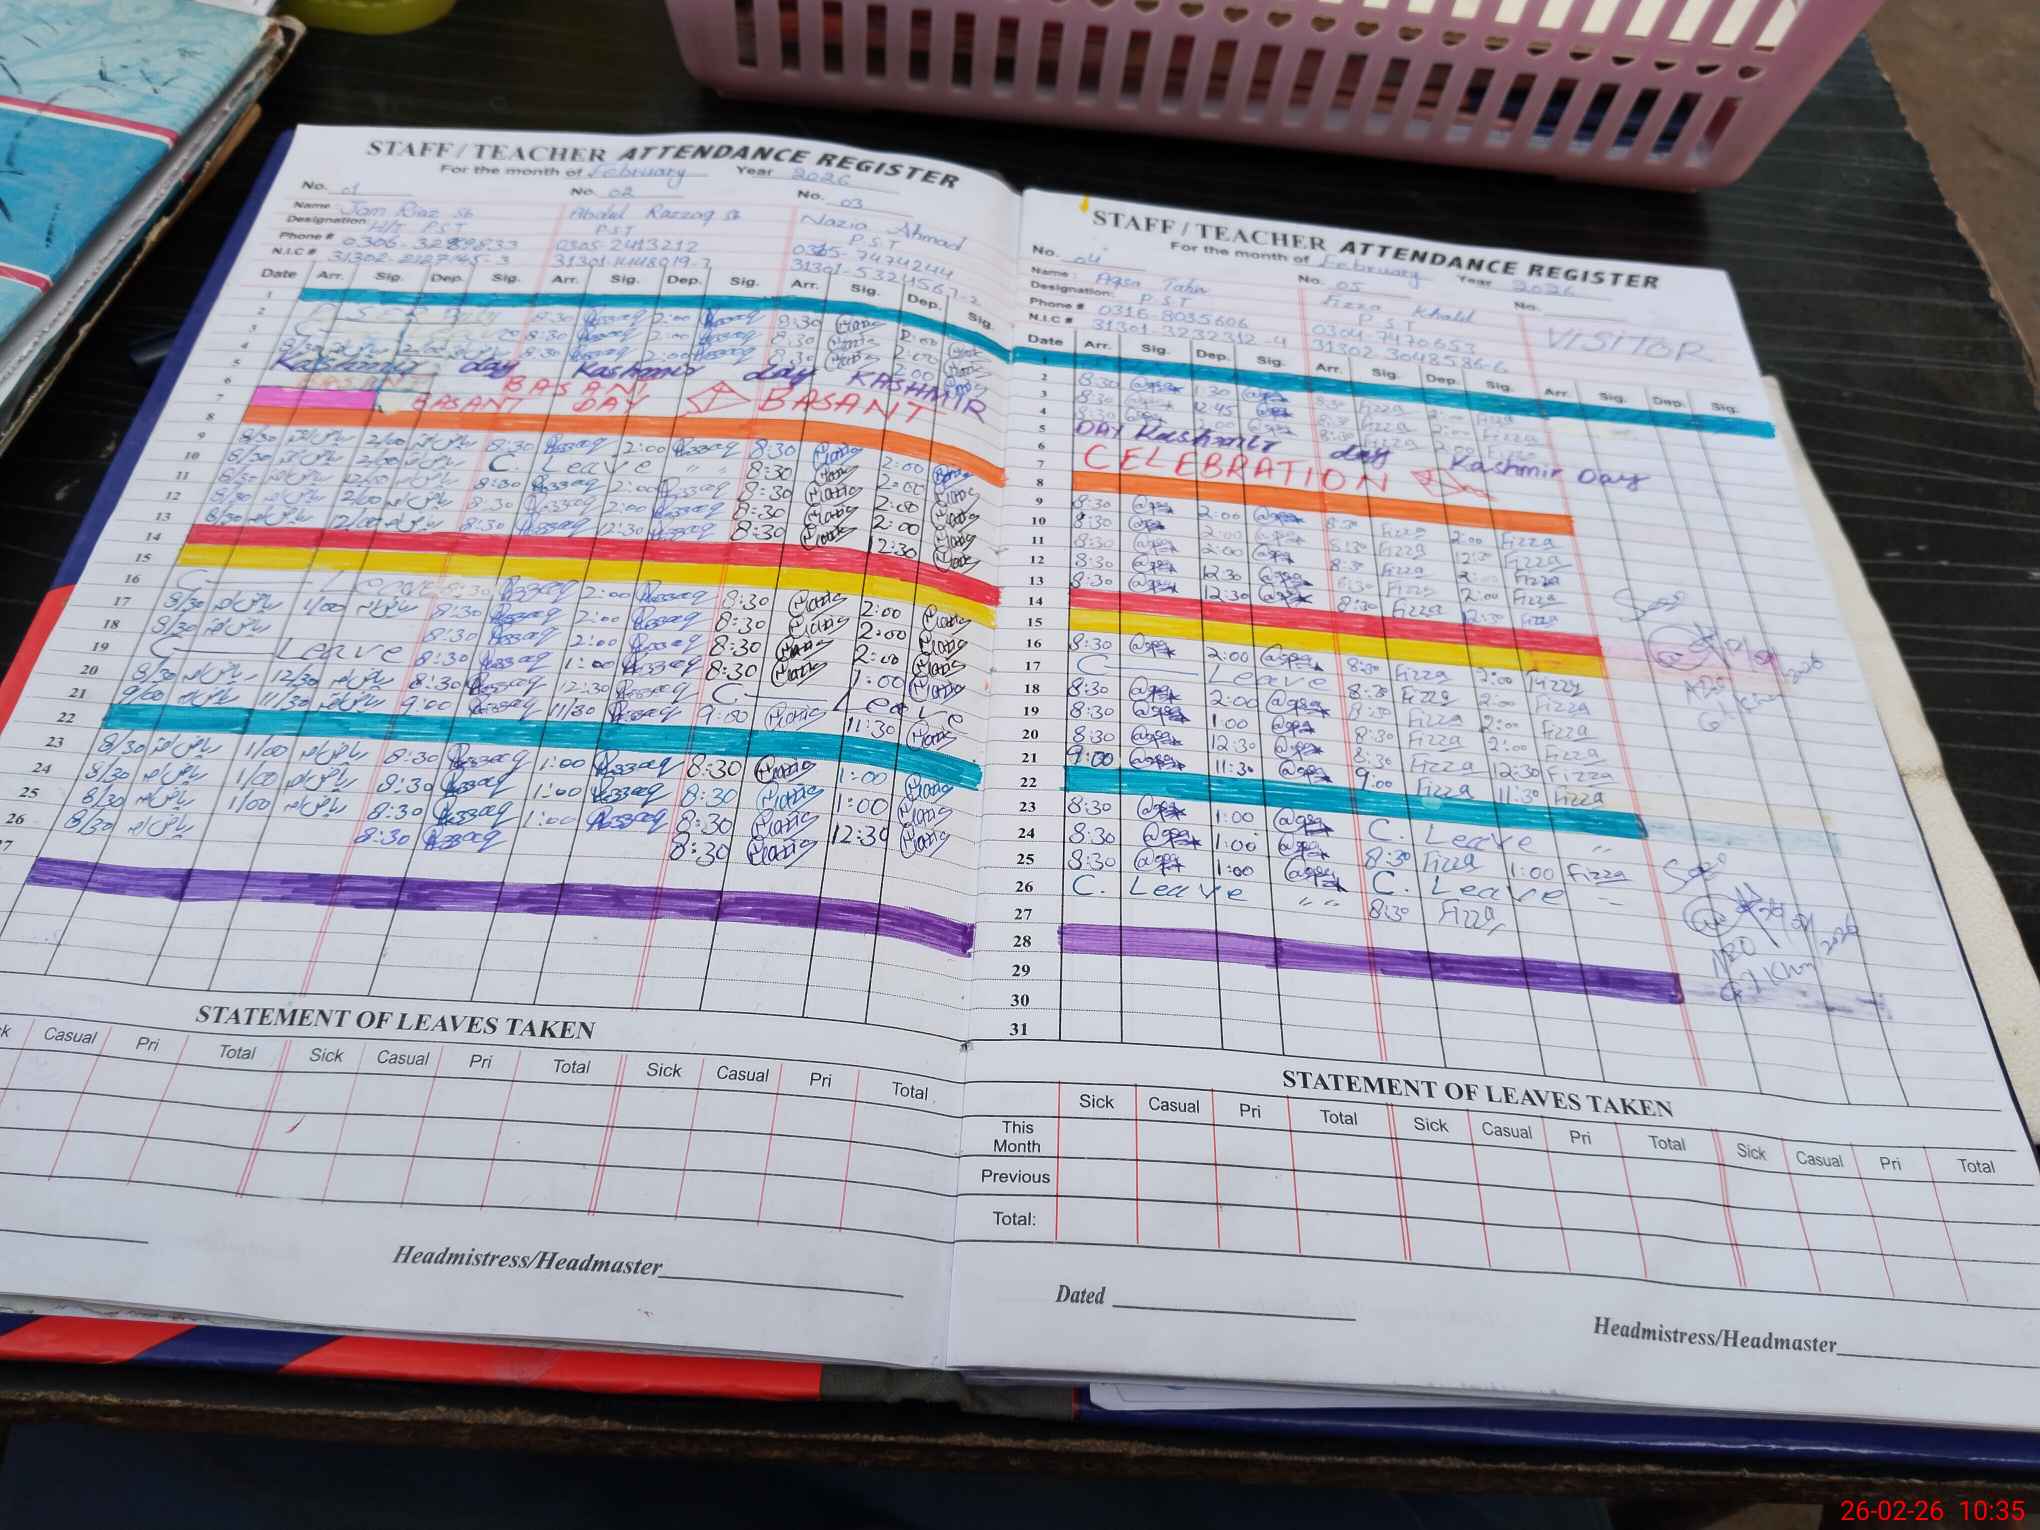 STAFF / TEACHER ATTENDANCE REGISTER
For the month of February Year 2026
No. 01 No. 02 No. 03
Name Jam Riaz Sb Abdul Razzaq Sb Nazia Ahmad
Designation H/T P.S.T P.S.T P.S.T
Phone # 0305-2413212
N.I.C #
Date Arr. Sig. Dep. Sig. Arr. Sig. Dep. Sig. Arr. Sig. Dep. Sig.
1
2 8:30 Razzaq 2:00 Razzaq 8:30 Nazia 2:00
3 8:30 Razzaq 2:00 Razzaq 8:30 Nazia 2:00
4 8:30 Razzaq 2:00 Razzaq 8:30 Nazia 2:00
5 Kashmir day Kashmir day KASHMIR
6 BASANT
7 BASANT DAY BASANT
8
9 8/30 ریاض احمد 2/00 ریاض احمد 8:30 Razzaq 2:00 Razzaq 8:30 Nazia 2:00 Nazia
10 8/30 ریاض احمد 2/00 ریاض احمد C. Leave " " 8:30 Nazia 2:00 Nazia
11 8/30 ریاض احمد 12/00 ریاض احمد 8:30 Razzaq 2:00 Razzaq 8:30 Nazia 2:00 Nazia
12 8/30 ریاض احمد 2/00 ریاض احمد 8:30 Razzaq 2:00 Razzaq 8:30 Nazia 2:00 Nazia
13 8/30 ریاض احمد 12/00 ریاض احمد 8:30 Razzaq 12:30 Razzaq 8:30 Nazia 12:30 Nazia
14
15
16 C Leave 8:30 Razzaq 2:00 Razzaq 8:30 Nazia 2:00 Nazia
17 8/30 ریاض احمد 1/00 ریاض احمد 8:30 Razzaq 2:00 Razzaq 8:30 Nazia 2:00 Nazia
18 8/30 ریاض احمد 8:30 Razzaq 2:00 Razzaq 8:30 Nazia 2:00 Nazia
19 C Leave 8:30 Razzaq 1:00 Razzaq 8:30 Nazia 1:00 Nazia
20 8/30 ریاض احمد 12/30 ریاض احمد 8:30 Razzaq 12:30 Razzaq C Leave
21 9/00 ریاض احمد 11/30 ریاض احمد 9:00 Razzaq 11/30 Razzaq 9:00 Nazia 11:30 Nazia
22
23 8/30 ریاض احمد 1/00 ریاض احمد 8:30 Razzaq 1:00 Razzaq 8:30 Nazia 1:00 Nazia
24 8/30 ریاض احمد 1/00 ریاض احمد 8:30 Razzaq 1:00 Razzaq 8:30 Nazia 1:00 Nazia
25 8/30 ریاض احمد 1/00 ریاض احمد 8:30 Razzaq 1:00 Razzaq 8:30 Nazia 12:30 Nazia
26 8/30 ریاض احمد 8:30 Razzaq 8:30 Nazia
STATEMENT OF LEAVES TAKEN
Casual Pri Total Sick Casual Pri Total Sick Casual Pri Total
Headmistress/Headmaster
STAFF / TEACHER ATTENDANCE REGISTER
For the month of February Year 2026
No. 04 No. 05 No.
Name: Aqsa Tahir Fizza Khalid VISITOR
Designation: P.S.T P.S.T
Phone # 0316-8035606 0304-7470653
N.I.C # 31301-3232312-4 31302-3048586-6
Date Arr. Sig. Dep. Sig. Arr. Sig. Dep. Sig. Arr. Sig. Dep. Sig.
1
2 8:30 Aqsa 1:30 Aqsa 8:30 Fizza 2:00 Fizza
3 8:30 Aqsa 12:45 Aqsa 8:30 Fizza 2:00 Fizza
4 8:30 Aqsa Aqsa 8:30 Fizza 2:00 Fizza
5 DAY Kashmir day Kashmir Day
6
7 CELEBRATION
8
9 8:30 Aqsa 2:00 Aqsa 8:30 Fizza 2:00 Fizza
10 8:30 Aqsa 2:00 Aqsa 8:30 Fizza 12:30 Fizza
11 8:30 Aqsa 2:00 Aqsa 8:30 Fizza 2:00 Fizza
12 8:30 Aqsa 12:30 Aqsa 8:30 Fizza 2:00 Fizza
13 8:30 Aqsa 12:30 Aqsa 8:30 Fizza 12:30 Fizza
14
15
16 8:30 Aqsa 2:00 Aqsa 8:30 Fizza 2:00 Fizza
17 C Leave 8:30 Fizza 2:00 Fizza
18 8:30 Aqsa 2:00 Aqsa 8:30 Fizza 2:00 Fizza
19 8:30 Aqsa 1:00 Aqsa 8:30 Fizza 2:00 Fizza
20 8:30 Aqsa 12:30 Aqsa 8:30 Fizza 12:30 Fizza
21 9:00 Aqsa 11:30 Aqsa 9:00 Fizza 11:30 Fizza
22
23 8:30 Aqsa 1:00 Aqsa C. Leave "
24 8:30 Aqsa 1:00 Aqsa 8:30 Fizza 1:00 Fizza
25 8:30 Aqsa 1:00 Aqsa C. Leave
26 C. Leave " " 8:30 Fizza
27
28
29
30
31
STATEMENT OF LEAVES TAKEN
Sick Casual Pri Total Sick Casual Pri Total Sick Casual Pri Total
This Month
Previous
Total:
Dated
Headmistress/Headmaster
26-02-26 10:35